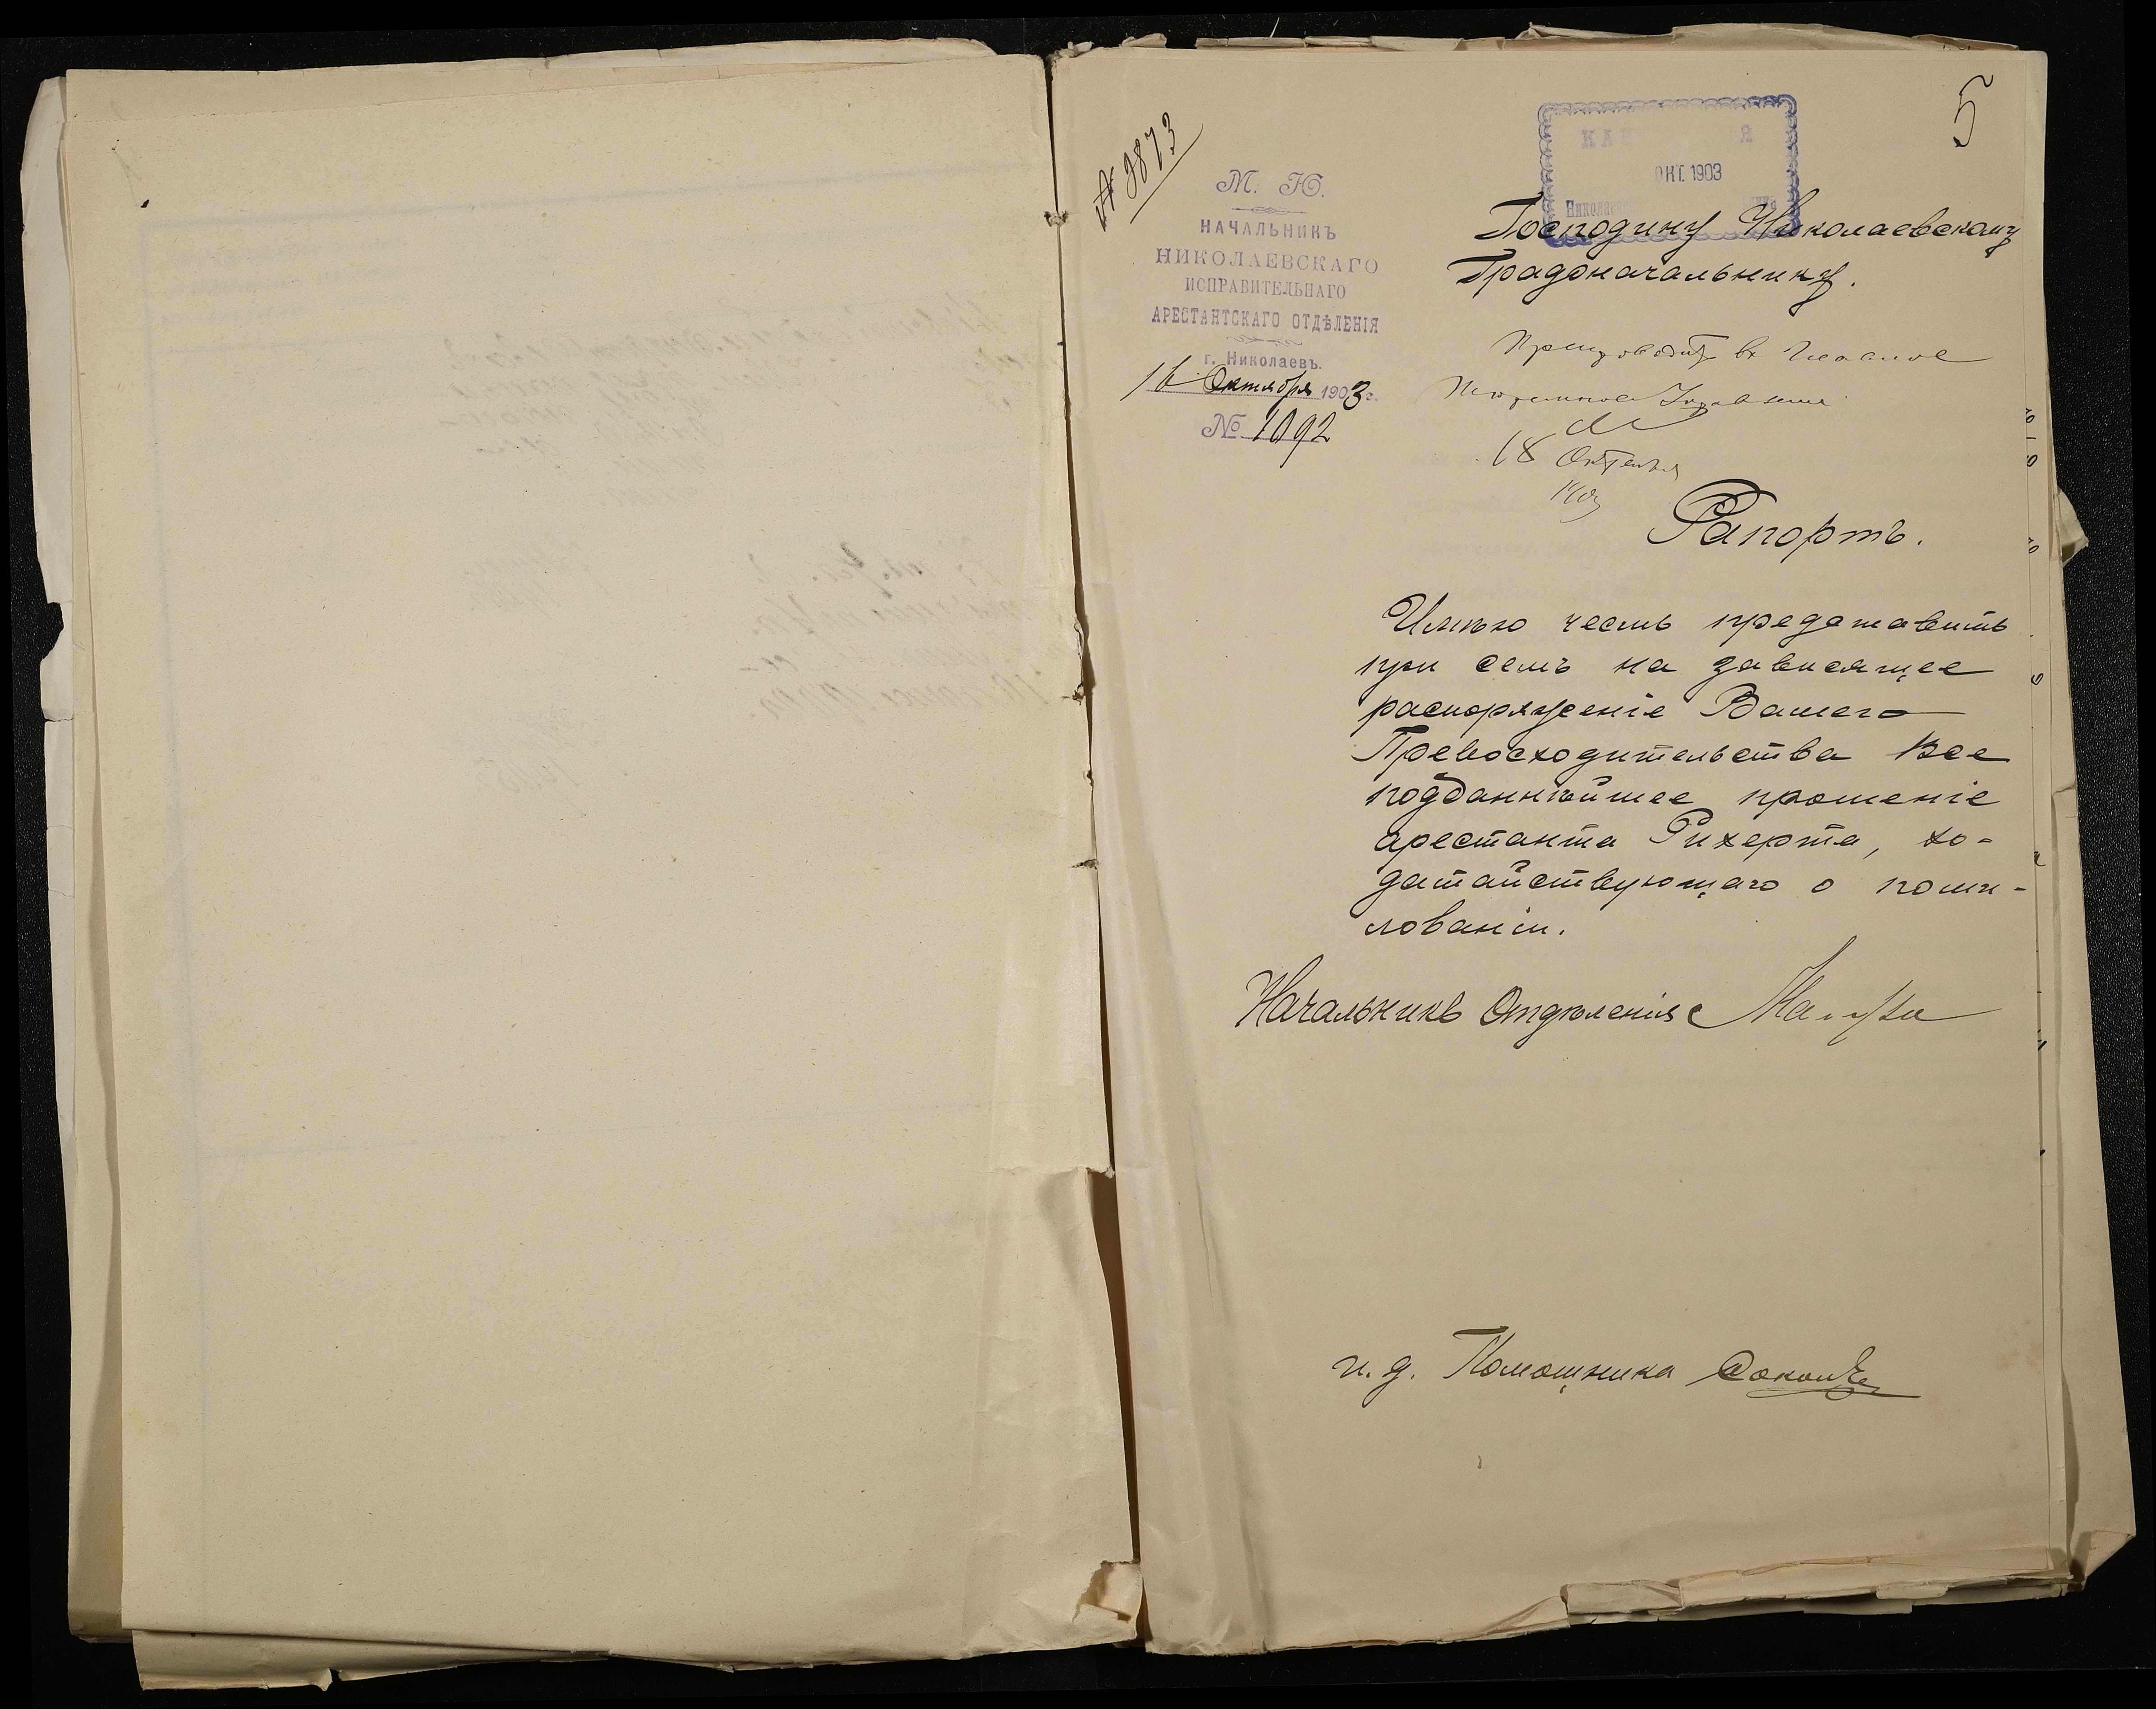 5
№ 3873
М. Ю.
НАЧАЛЬНИКЪ
НИКОЛАЕВСКАГО
ИСПРАВИТЕЛЬНАГО
АРЕСТАНТСКАГО ОТДѢЛЕНІЯ
г. Николаевъ.
16 Октября 1903 г.
№ 1092
ОКТ. 1903
Господину Николаевскому
Градоначальнику.
Препроводить въ Главное
Тюремное Управленіе
18 Октября
1903
Рапортъ.
Имѣю честь представить
при семъ на зависящее
распоряженіе Вашего
Превосходительства Все
подданнѣйшее прошеніе
арестанта Рихерта, хо-
датайствующаго о поми-
лованіи.
Начальникъ Отдѣленія
и. д. Помощника